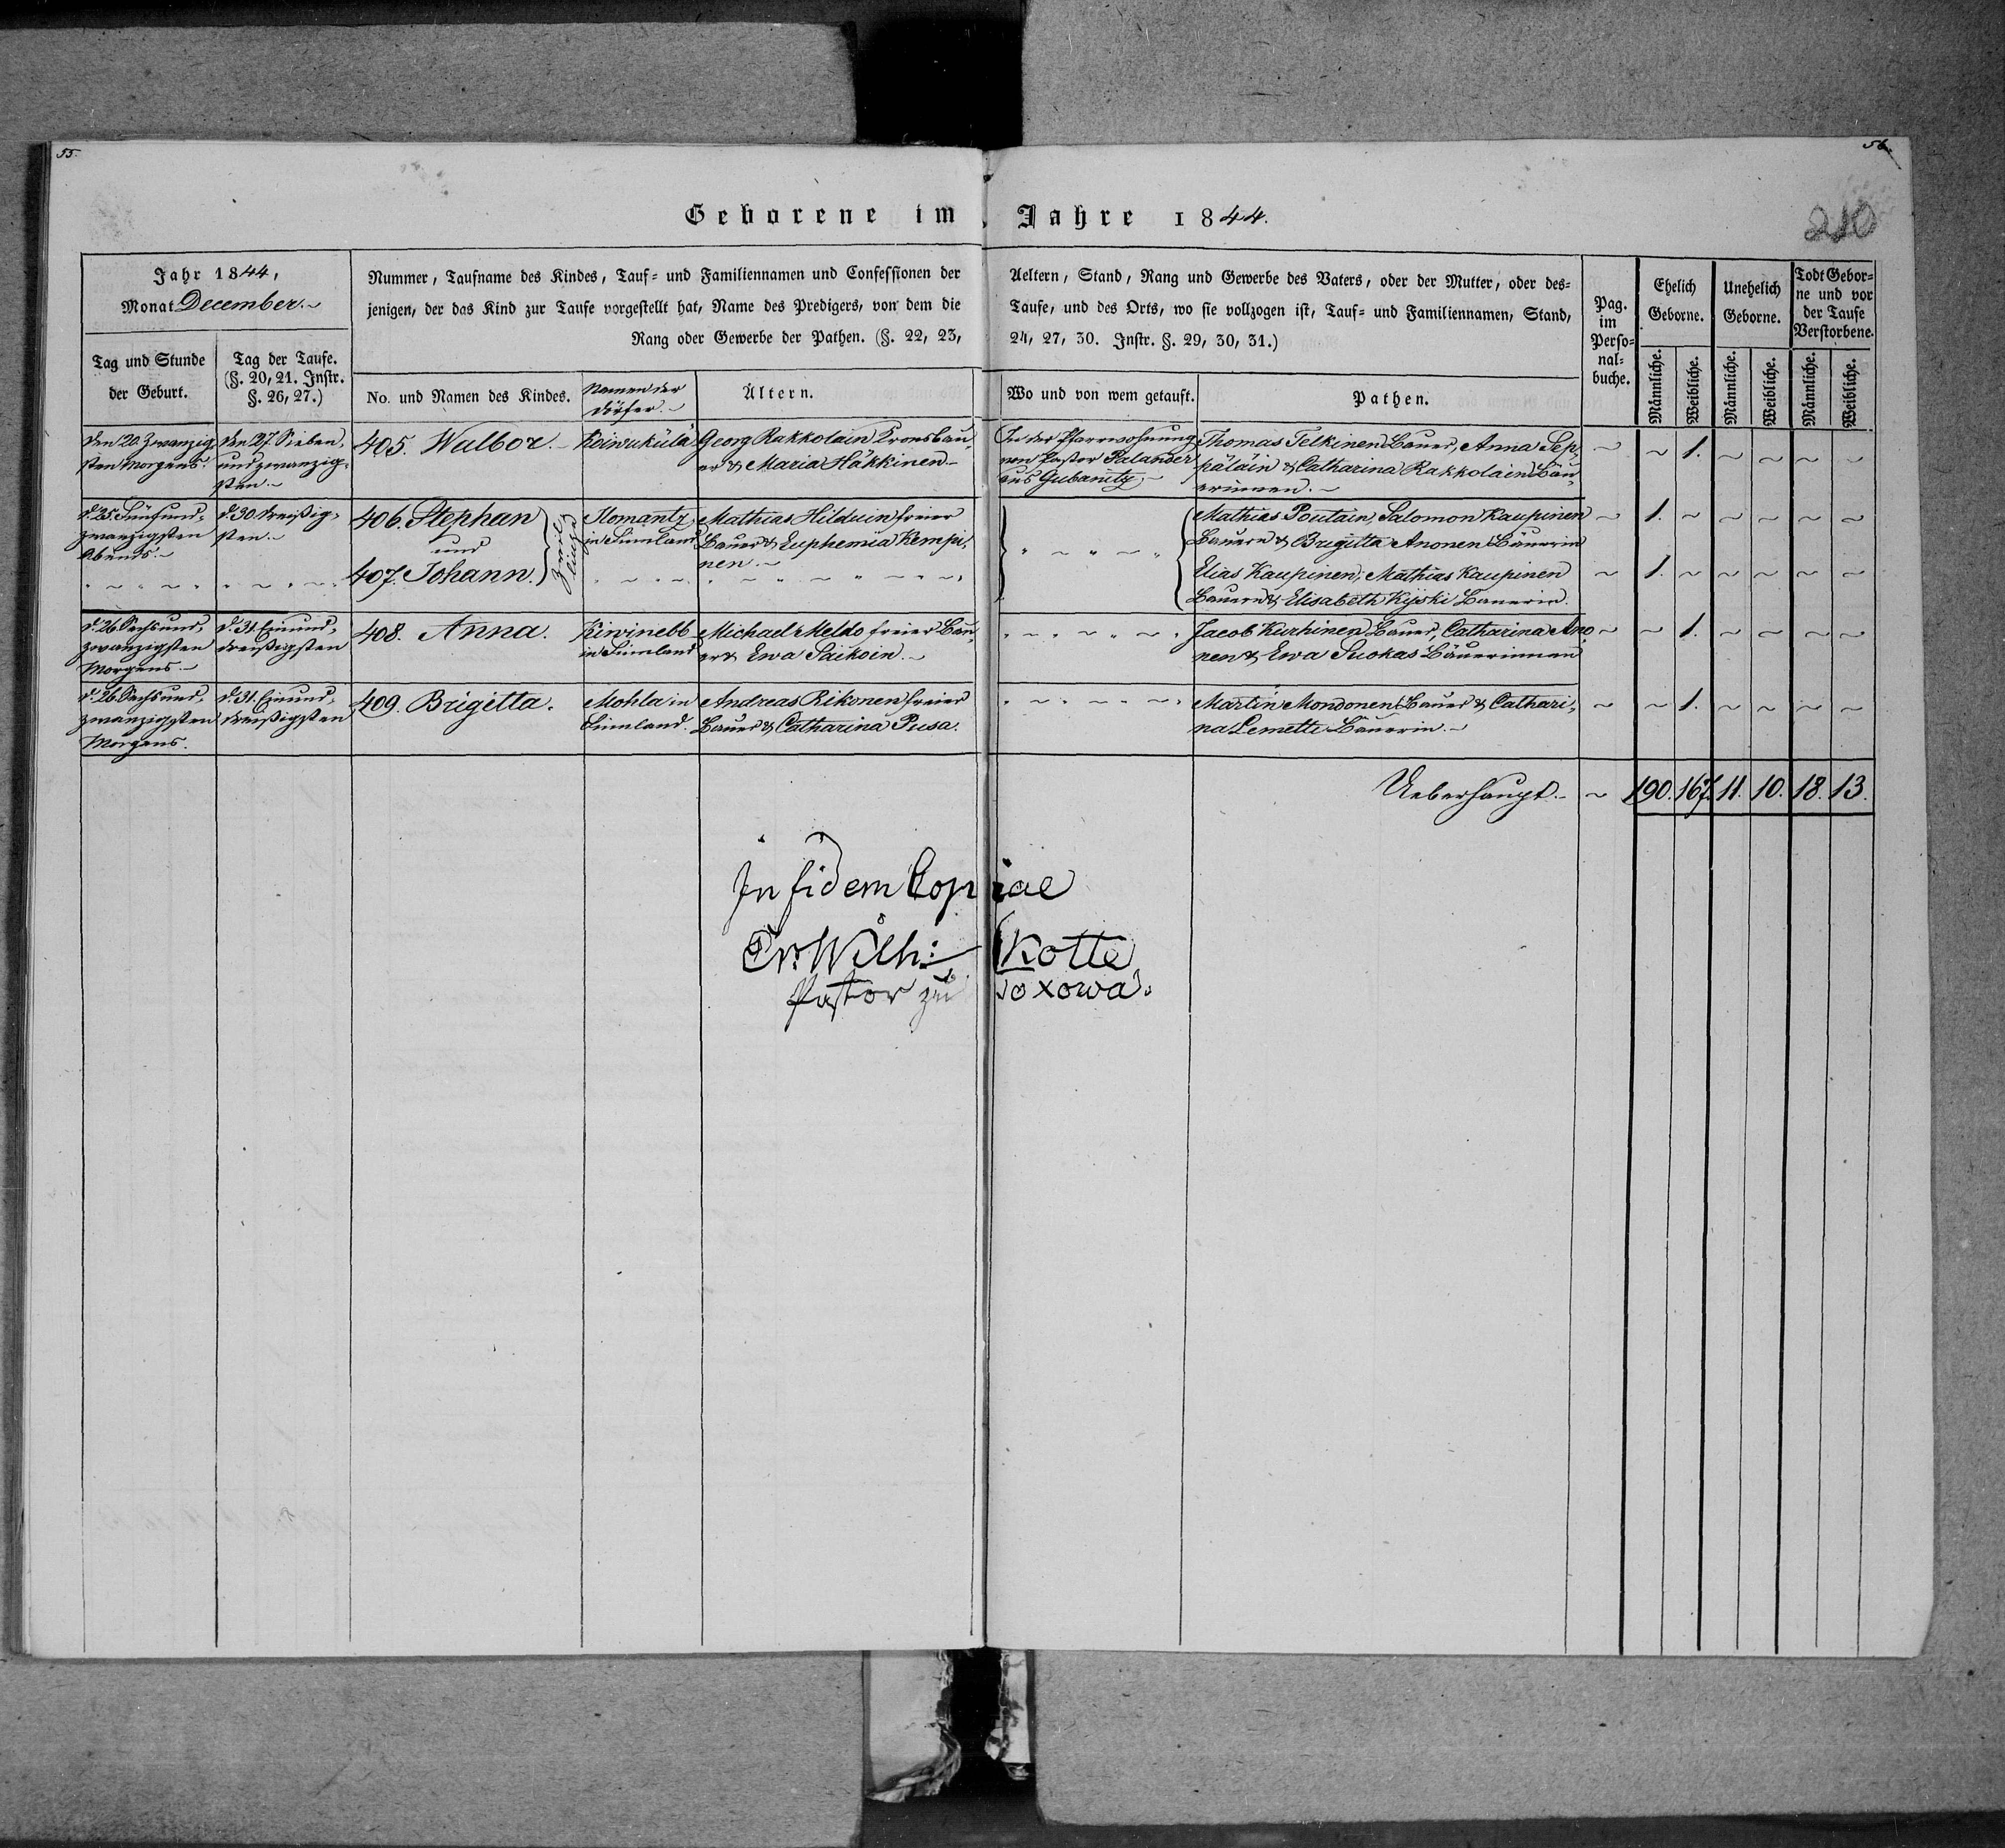 55.
56.
210
Geborene im Jahre 1844.
Jahr 1844,
Monat December.~
Tag und Stunde
der Geburt.
Tag der Taufe.
(§. 20, 21. Instr.
§. 26, 27.)
Nummer, Taufname des Kindes, Tauf- und Familiennamen und Confessionen der
jenigen, der das Kind zur Taufe vorgestellt hat, Name des Predigers, von dem die
Rang oder Gewerbe der Pathen. (§. 22, 23,
No. und Namen des Kindes.
Namen der
Dörfer.~
Ältern.
Aeltern, Stand, Rang und Gewerbe des Vaters, oder der Mutter, oder des-
Taufe, und des Orts, wo sie vollzogen ist, Tauf- und Familiennamen, Stand,
24, 27, 30. Instr. §. 29, 30, 31.)
Wo und von wem getauft.
Pathen.
Pag.
im
Perso-
nal-
buche.
Ehelich
Geborne.
Unehelich
Geborne.
Todt Gebor-
ne und vor
der Taufe
Verstorbene.
Männliche.
Weibliche.
Männliche.
Weibliche.
Männliche.
Weibliche.
den 20. Zwanzig
sten Morgens.
den 27. Sieben-
undzwanzig-
sten.~
405. Walbor.~
Koiwukülä
Georg Rakkolain Kronsbau-
er & Maria Häkkinen.~
In der Pfarrwohnung
von Pastor Palander
aus Gubanitz.~
Thomas Telkinen Bauer, Anna Sep-
päläin & Catharina Rakkolain Bäu-
erinnen.~
~ ~ 1. ~ ~ ~ ~
d. 25. Fünfund-
zwanzigsten
Abends.~
d. 30. dreißig-
sten.~
406. Stephan
und
407. Johann.
Zwil-
linge
Ilomantz
in Finnland
Mathias Hilduin freier
Bauer & Euphemia Kempi-
nen.~
Mathias Poutain, Salomon Kaupinen
Bauern & Brigitta Anonen Bäuerin
~ 1. ~ ~ ~ ~ ~
Elias Kaupinen, Mathias Kaupinen
Bauern & Elisabeth Kijski Bauerin.
~ 1. ~ ~ ~ ~ ~
d. 26. Sechsund-
zwanzigsten
Morgens.~
d. 31. Einund-
dreißigsten
408. Anna.
Kiwinebb
in Finnland
Michael Meldo freier Bau-
er & Ewa Säikoin.~
Jacob Kurhinen Bauer, Catharina Ano-
nen & Ewa Suokas Bäuerinnen
~ ~ 1. ~ ~ ~ ~
d. 26. Sechsund-
zwanzigsten
Morgens.
d. 31. Einund-
dreißigsten
409. Brigitta.
Mohla in
Finnland.
Andreas Rikonen freier
Bauer & Catharina Pusa.
Martin Mondonen Bauer & Cathari-
na Lemetti Bäuerin.~
~ ~ 1. ~ ~ ~ ~
Ueberhaupt.~ ~ 190. 167. 11. 10. 18. 13.
In fidem Copiae
Wilh: Kotte
Pastor zu Toxowa.